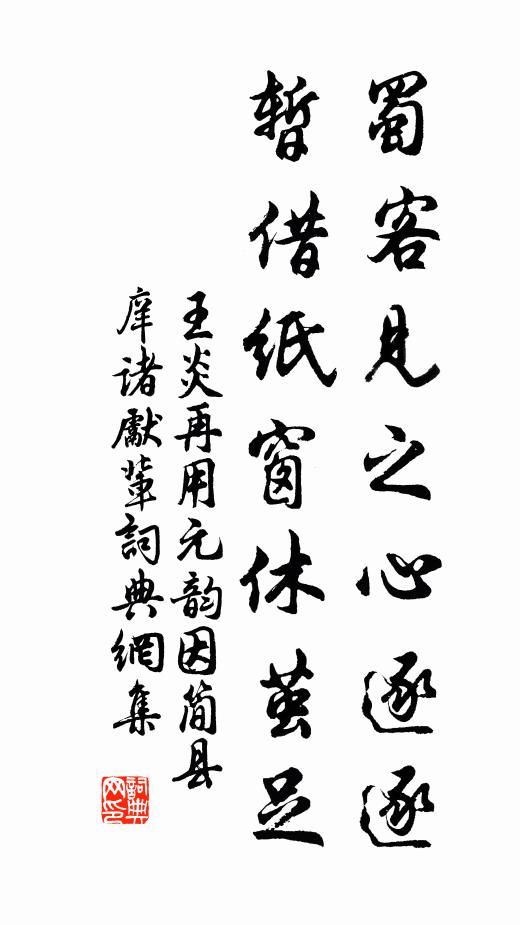 蜀客見之心逐逐
暫借紙窗休茧足
王炎再用元韵因简县
庠诸獻輩詞典網集
詞典网印